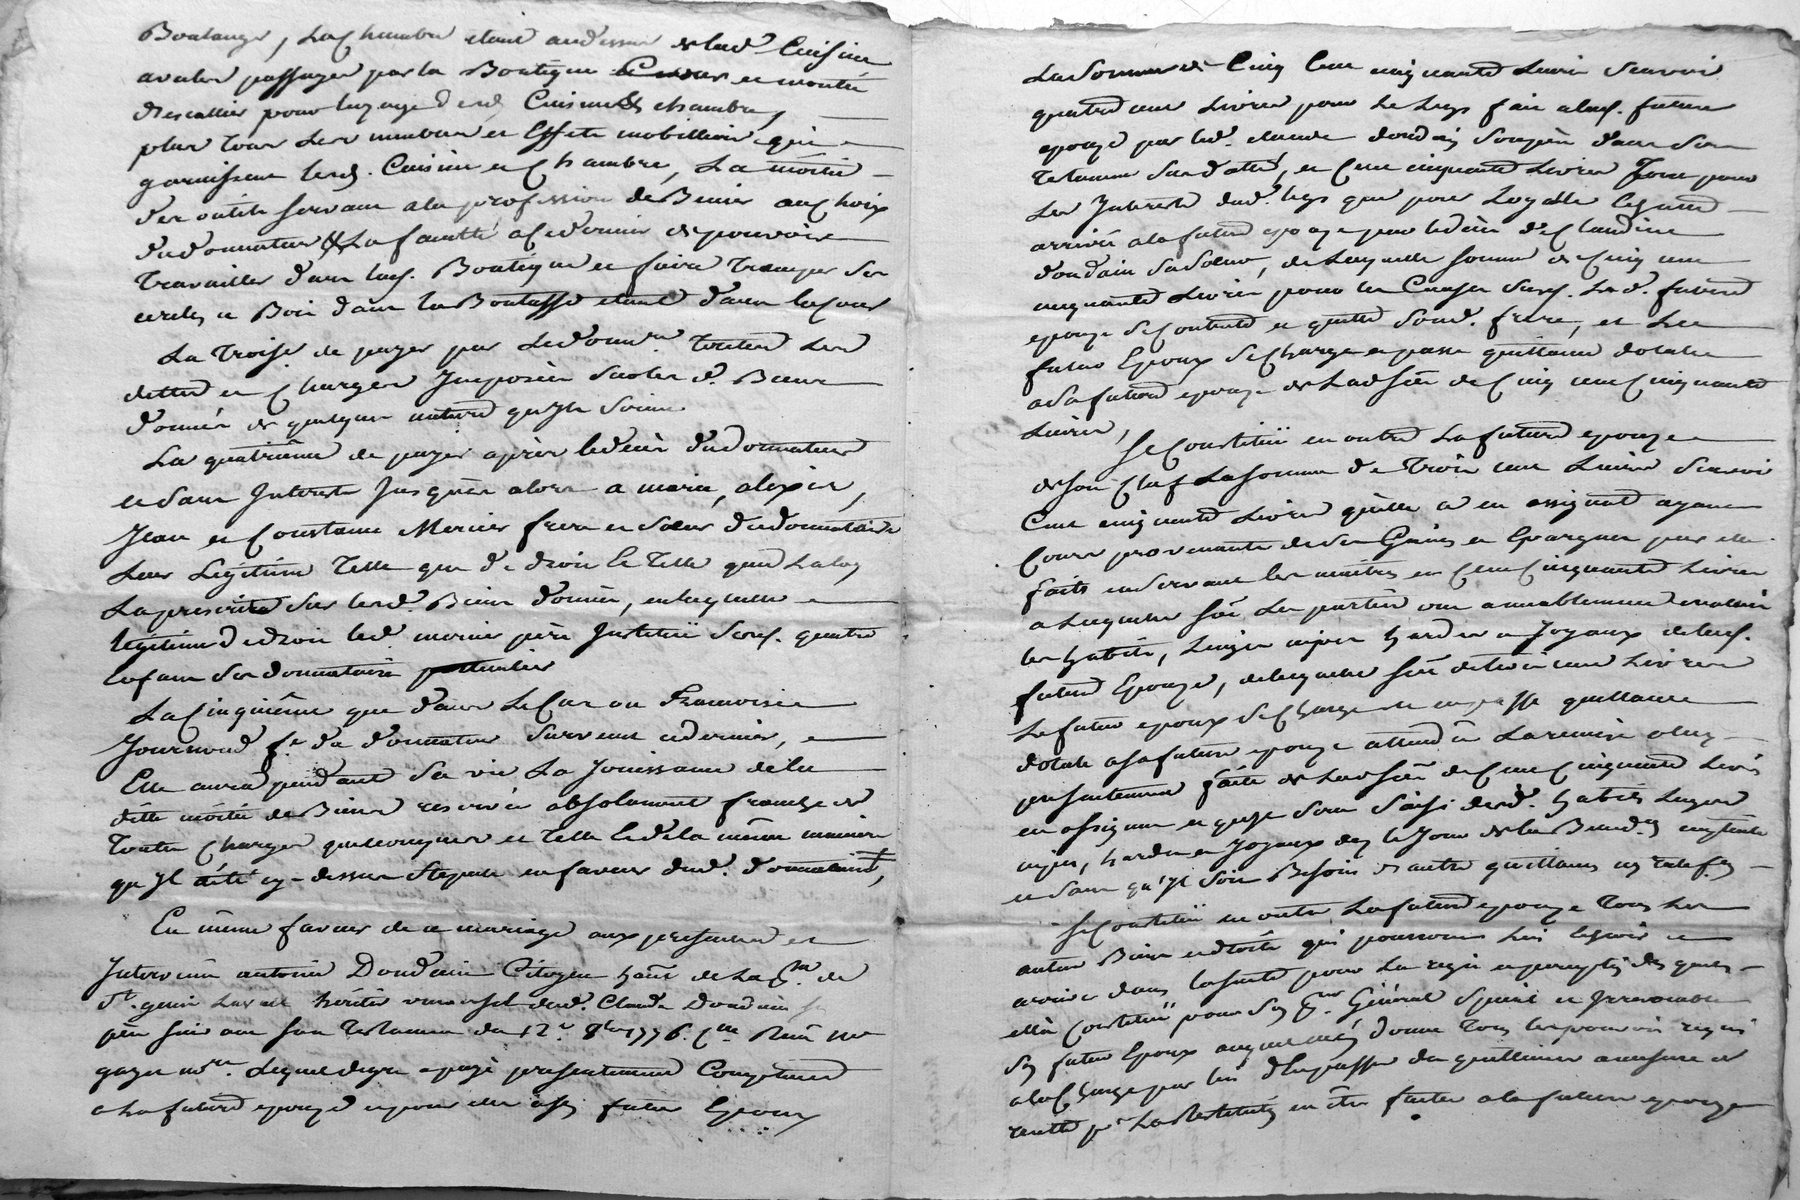 Boulanger, La Chambre etant audessus de lad. Cuisine
avec les passages par la Boutique et montée
d'escallier pour l'uzage desd. Cuisine & chambre,
plus tous les meubles et Effets mobilliers qui
garnissent lesd. Cuisine et Chambre, La moitié
des outils servant a la profession de Benier au Choix
du donnateur & La faculté a ce dernier de pouvoir
Travailler dans lad. Boutique et faire Tremper ses
cercles et Bois dans la Boutasse etant dans la Cour
La Troise. de payer par Le donnre. toutes Les
dettes et Charges Imposées sur les d. Biens
donnés de quelque nature qu'ils soient
La quatrième de payer après le décès du donnateur
et sans Interets jusques alors a marie, alexis,
Jean et Constance Mercier frere et sœurs du donnataire
Leur Légitime Telle que de droit et Telle que La loy
La prescrite sur lesd. Biens donnés, en laquelle
légitime de droit led. mercier père Institue sesd. quatre
enfans ses donnataires particuliers
La Cinquième que dans Le Cas ou Francoise
Journoud fe. du donnateur survecut ce dernier,
Elle aura pendant sa vie La Jouissance de la
ditte moitié de Biens reservés absolument franche de
Toutes Charges quelconques et Telle et de la même manière
qu'Il a été cy-dessus Stipulé en faveur dud. donnateur,
En même faveur de ce mariage aux presentes est
Intervenu antoine Doudain Citoyen habt. de La pse. de
St. genis Laval héritier universel dud. Claude Doudain
père suivant son Testament du 12e. 8bre 1776. Cm. Reçu me
gayet nre. Lequel de gré a payé presentement Comptant
a La future epouze et pour elle a sd. futur Epoux
La Somme de Cinq Cent cinquante Livres Scavoir
quatre cent Livres pour Le Legs fait a lad. future
epouze par led. claude doudain son père dans son
Testament sus daté, et Cent cinquante Livres Tant pour
Les Interets dud. legs que pour
arrivée a la future epouze par le décès de Claudine
doudain sa sœur, de Laquelle somme de Cinq cent
cinquante Livres pour les Causes susd. Lad. future
epouze se Contente et quitte sond. frere, et Le
futur Epoux se Charge et passe quittance dotale
a sa future epouze de Lad. Sôe de Cinq cent Cinquante
Livres,
Se Constitue en outre La future epouze
de son Chef La Somme de Trois cent Livres Scavoir
Cent cinquante Livres qu'elle a en assignat ayant
Cours provenants de ses Gains et Epargnes par elle
faits en servant les maîtres et Cent Cinquante Livres
a Laquelle Sôe Les parties ont amiablement evalué
les habits, Linges nipes hardes et Joyaux de lad.
future Epouze, de laquelle Sôe de trois cent Livres
Le futur epoux se Charge et en passe quittance
dotale a sa future epouze attendu La remise a luy
presentement faite de Lad Sôe de Cent Cinquante Livres
en assignat et qu'il sera Saisi desd. habits Linges
nipes, hardes et Joyaux dez le Jour de la Bened.on nuptiale
et sans qu'il soit Besoin d'autre quittance
Se Constitue en outre La future epouze Tous Les
autres Biens et droits qui pourront Lui echoir et
arriver dans la suite pour La regie et perception des quels
elle a Constitué pour son pr. Général Special et Irrevocable
son futur Epoux auquel elle donne Tous les pouvoirs requis
a la Charge par lui d'en passer des quittances a mesure de
recette pr. La Restitution en être faite a la future epouze